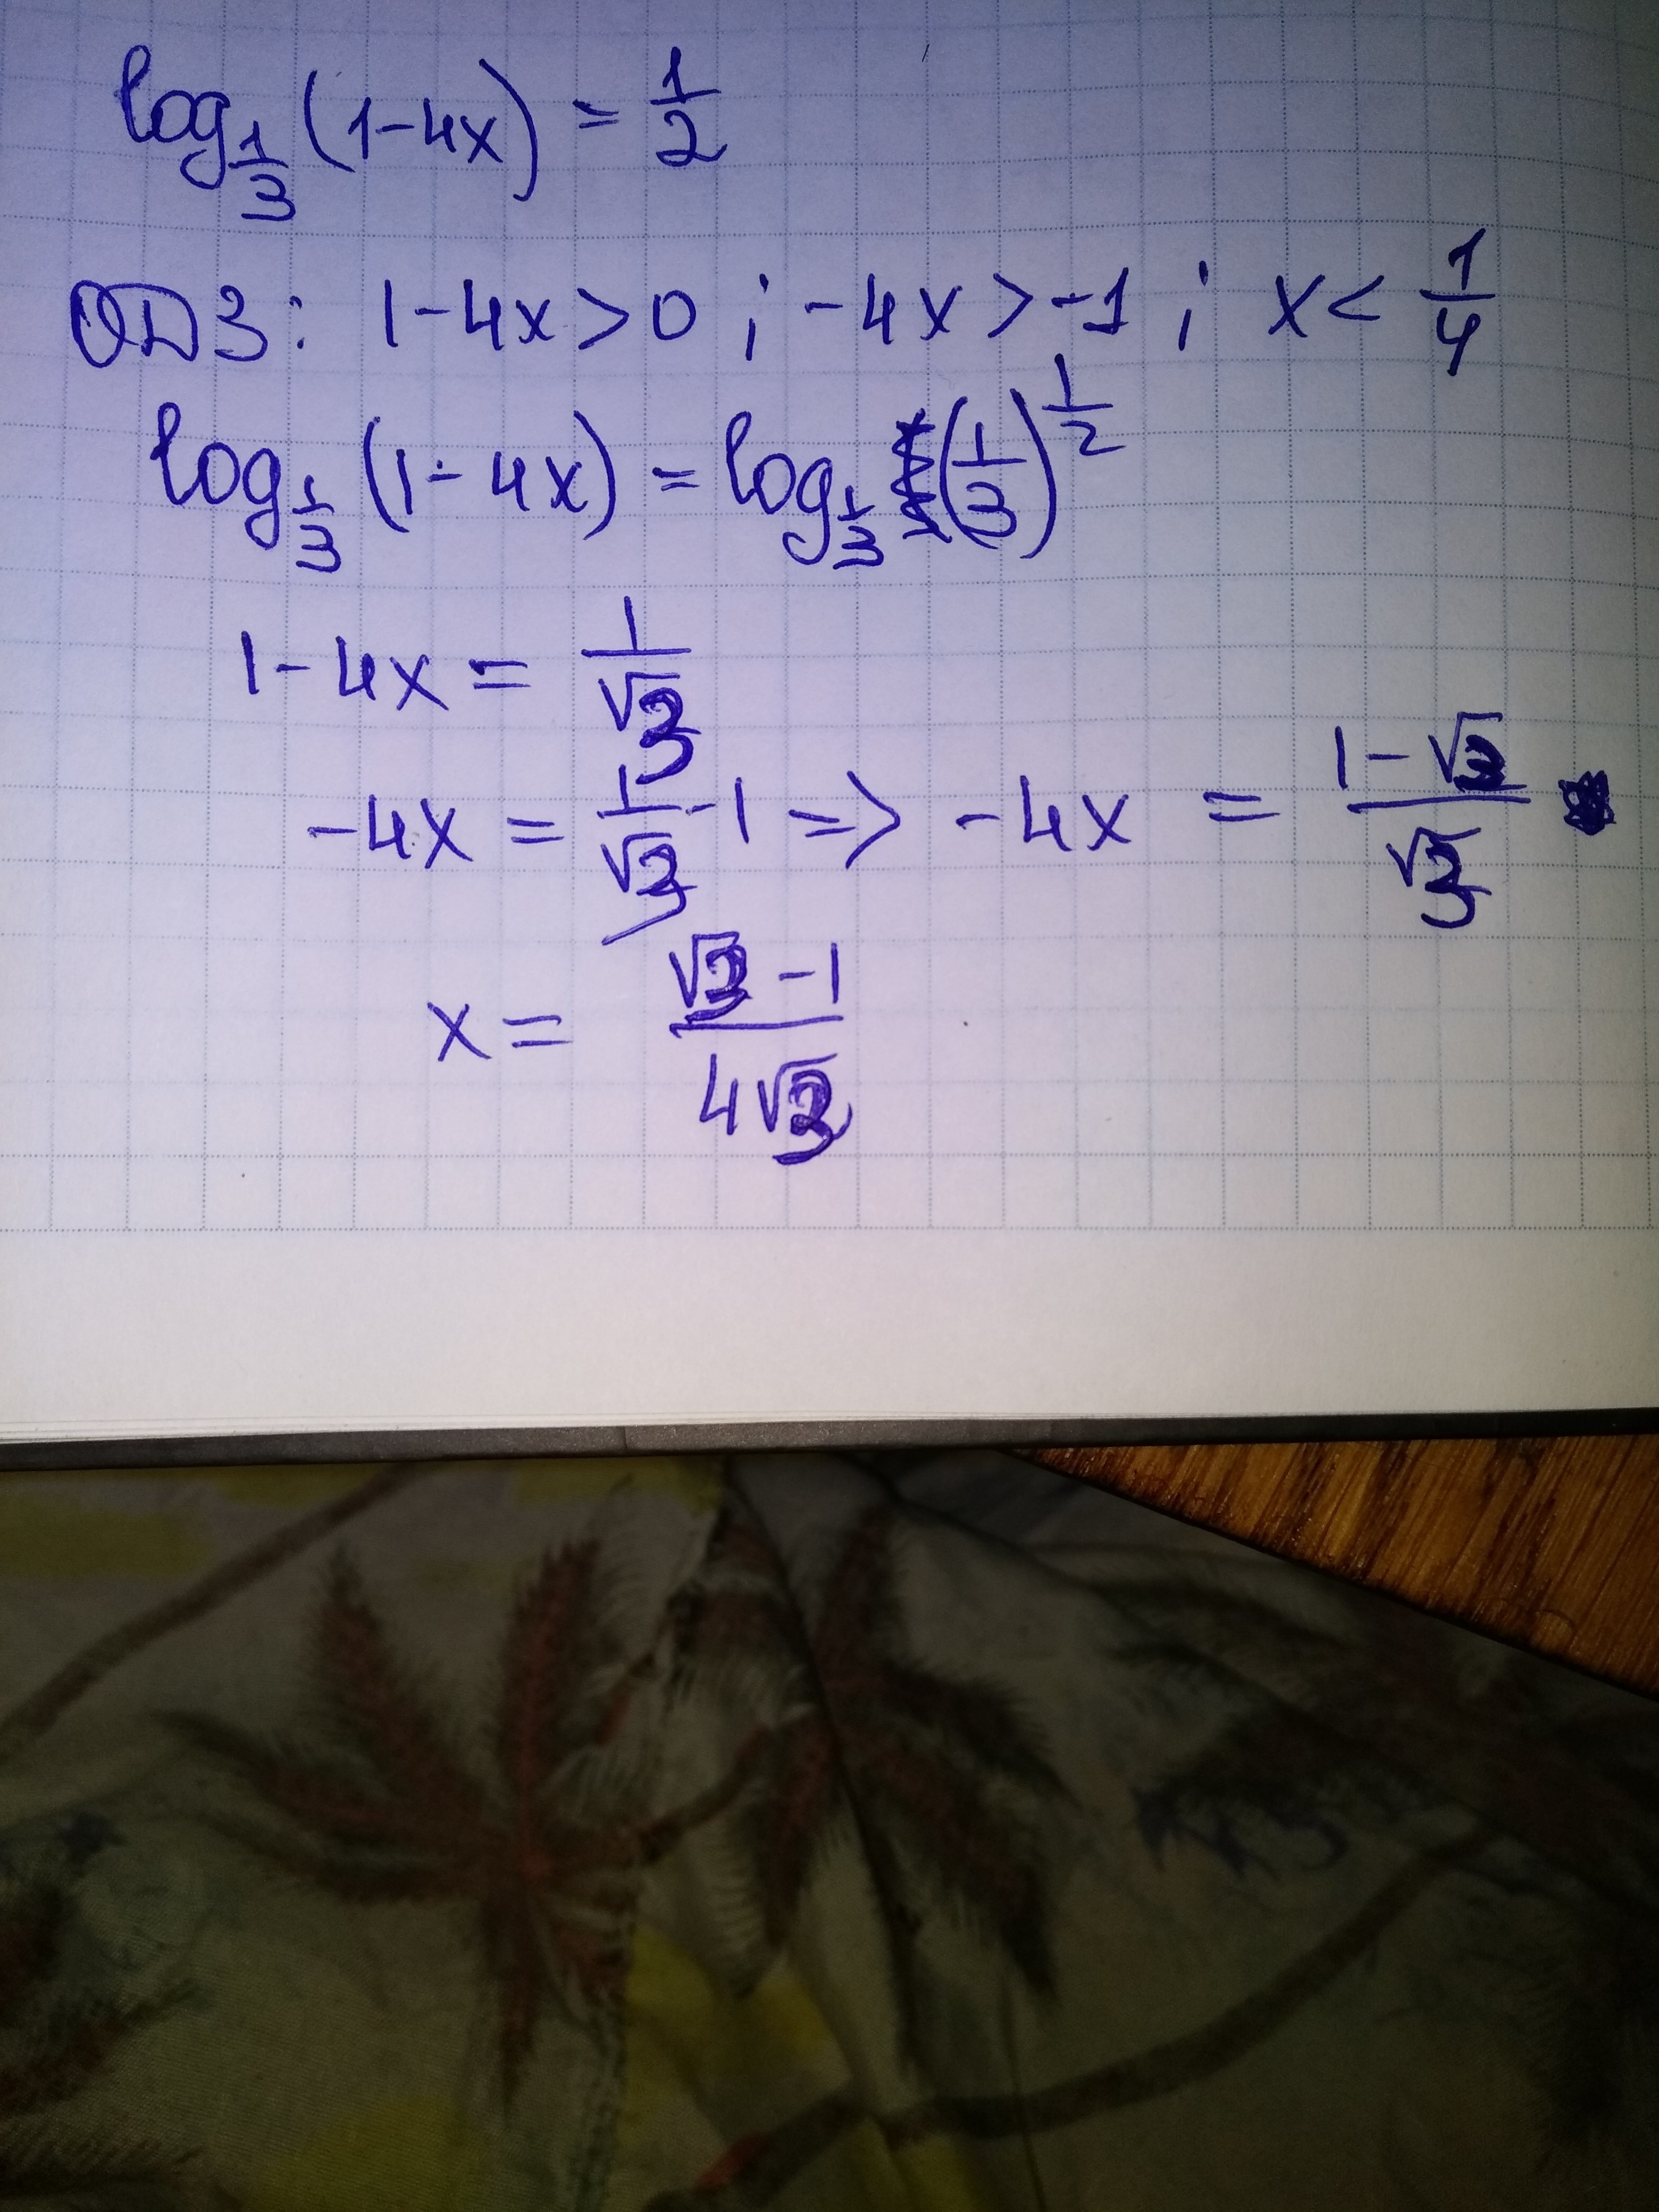 log_{1/3} (1-4x) = 1/2
ОДЗ: 1-4x>0 ; -4x>-1 ; x< 1/4
log_{1/3} (1-4x) = log_{1/3} (1/3)^{1/2}
1-4x = 1/√3
-4x = 1/√3 -1 => -4x = (1-√3)/√3
x = (√3 -1)/(4√3)